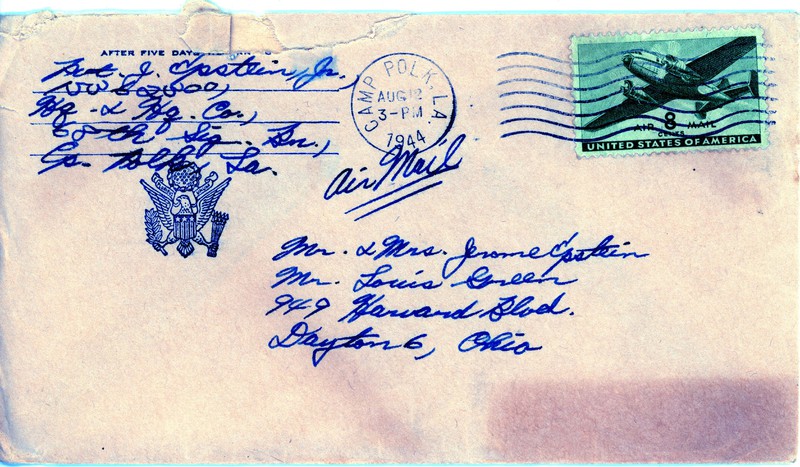 AFTER FIVE DAYS
Pvt. J. Epstein, Jr.,
Hq. & Hq. Co.,
68th Sig. Bn.,
Cp. Polk, La.
CAMP POLK, LA.
AUG 12
3-PM
1944
8
AIR MAIL
CENTS
UNITED STATES OF AMERICA
Air Mail
Mr. & Mrs. Jerome Epstein
Mr. Louis Green
949 Harvard Blvd.
Dayton 6, Ohio